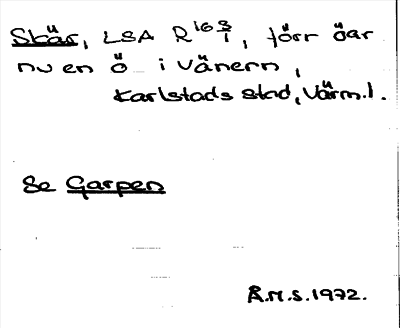 Skär, LSA R 16 3/1, förr öar
nu en ö i Vänern,
Karlstads stad, Värml.
Se Garpen
Å.M.S. 1972.